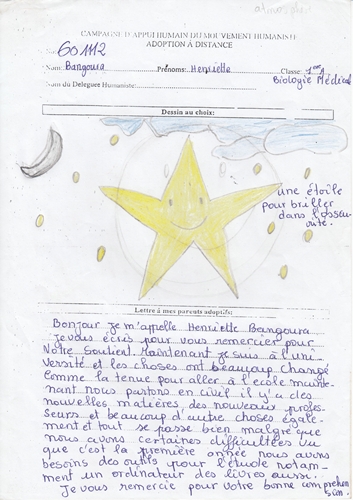 CAMPAGNE D'APPUI HUMAIN DU MOUVEMENT HUMANISTE
ADOPTION À DISTANCE
No: 601112
Nom: Bangoura Prénoms: Henriette Classe: 1ère A
Biologie Médical
Nom du Deleguee Humaniste:
Dessin au choix:
une étoile
pour briller
dans l'obscu
rité.
Lettre à mes parents adoptifs:
Bonjour je m'appelle Henriette Bangoura
je vous écris pour vous remercier pour
Votre Soutient. Maintenant je suis à l'uni
versité et les choses ont beaucoup changé
Comme la tenue pour aller à l'ecole mainte
nant nous partons en civil il y'a des
nouvelles matières, des nouveaux profes-
seurs et beaucoup d'autre choses égale-
ment et tout se passe bien malgré que
nous avons certaines difficultées vu
que c'est la première année nous avons
besoins des outils pour l'étude notam-
ment un ordinateur des livres aussi.
Je vous remercie pour votre bonne comprehen
sion.